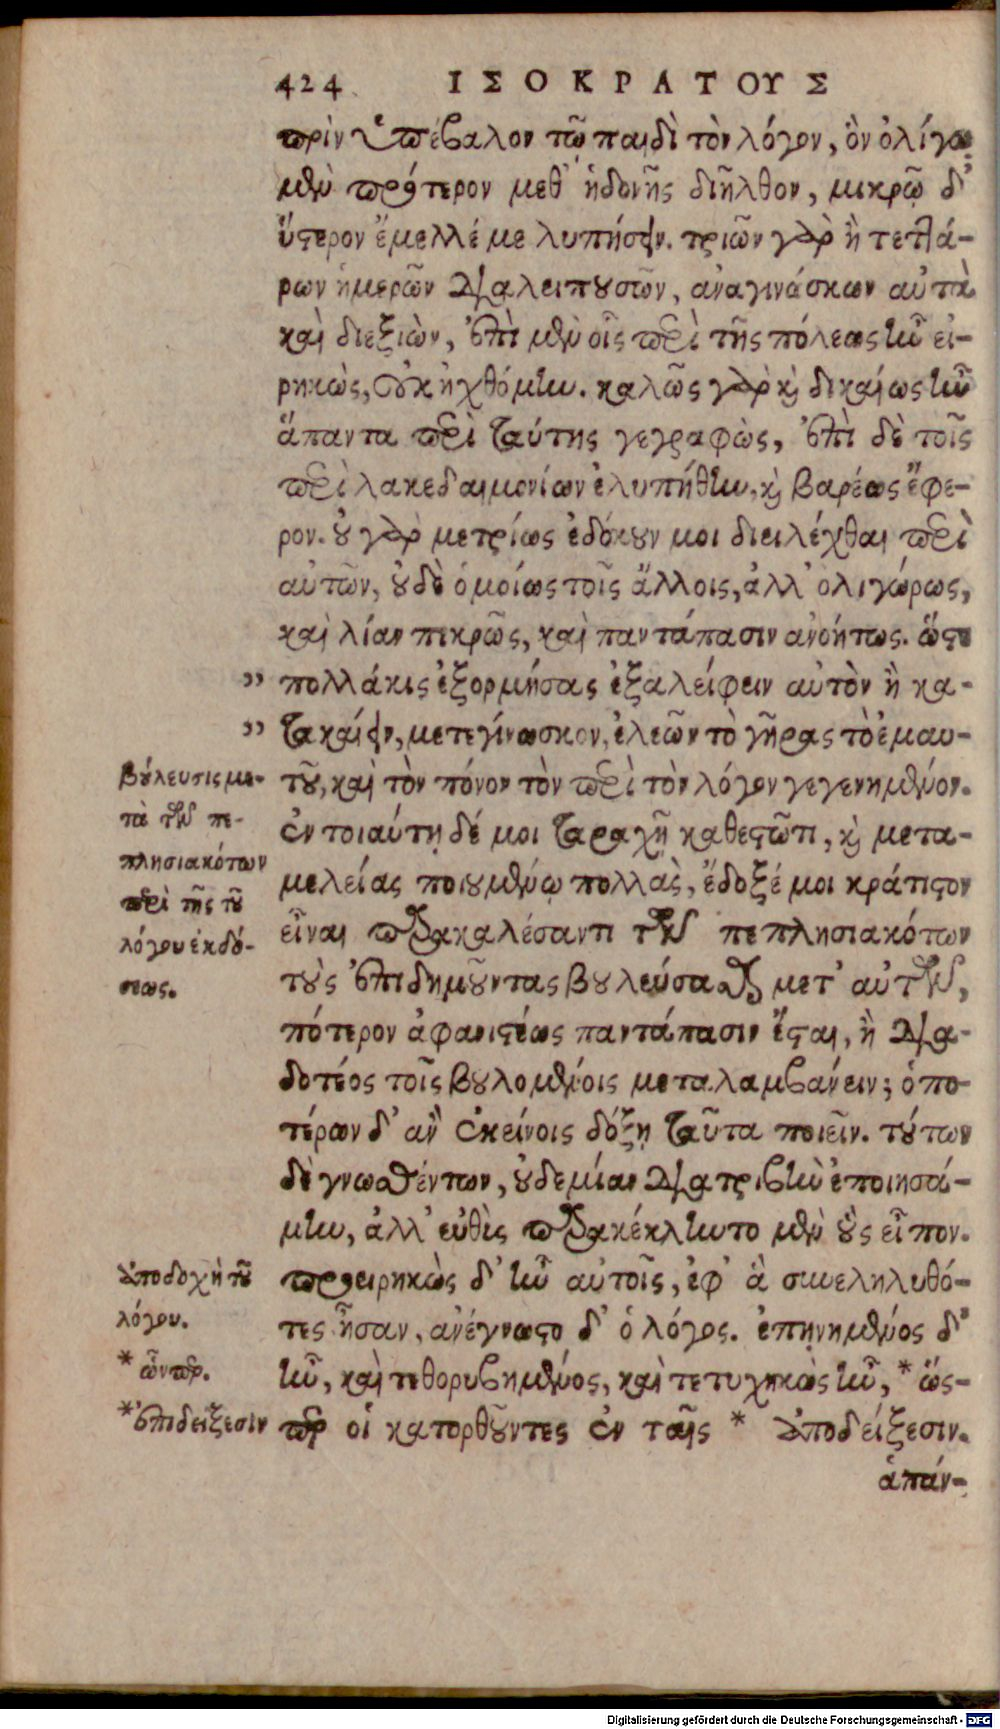 424 ΙΣΟΚΡΑΤΟΥΣ
πρὶν ὑπέβαλον τῷ παιδὶ τὸν λόγον, ὃν ὀλίγῳ
μὲν πρότερον μεθ' ἡδονῆς διῆλθον, μικρῷ δ'
ὕστερον ἔμελλέ με λυπήσειν. τριῶν γὰρ ἢ τεττά-
ρων ἡμερῶν διαλειπουσῶν, ἀναγινώσκων αὐτὰ
καὶ διεξιὼν, ἐπὶ μὲν οἷς περὶ τῆς πόλεως ἦν εἰ-
ρηκὼς, οὐκ ἠχθόμην. καλῶς γὰρ καὶ δικαίως ἦν
ἅπαντα περὶ ταύτης γεγραφὼς, ἐπὶ δὲ τοῖς
περὶ λακεδαιμονίων ἐλυπήθην, καὶ βαρέως ἔφε-
ρον. οὐ γὰρ μετρίως ἐδόκουν μοι διειλέχθαι περὶ
αὐτῶν, οὐδὲ ὁμοίως τοῖς ἄλλοις, ἀλλ' ὀλιγώρως,
καὶ λίαν πικρῶς, καὶ παντάπασιν ἀνοήτως. ὥστε
" πολλάκις ἐξορμήσας ἐξαλείφειν αὐτὸν ἢ κα-
" τακαίειν, μετεγίνωσκον, ἐλεῶν τὸ γῆρας τὸ ἐμαυ-
τοῦ, καὶ τὸν πόνον τὸν περὶ τὸν λόγον γεγενημένον.
ἐν τοιαύτῃ δέ μοι ταραχῇ καθεστῶτι, καὶ μετα-
μελείας ποιουμένῳ πολλὰς, ἔδοξέ μοι κράτιστον
εἶναι παρακαλέσαντι τῶν πεπλησιακότων
τοὺς ἐπιδημοῦντας βουλεύσασθαι μετ' αὐτῶν,
πότερον ἀφανιστέως παντάπασιν ἔσται, ἢ δια-
δοτέος τοῖς βουλομένοις μεταλαμβάνειν; ὁπο-
τέρων δ' ἂν ἐκείνοις δόξῃ ταῦτα ποιεῖν. τούτων
δὲ γνωσθέντων, οὐδεμίαν διατριβὴν ἐποιησά-
μην, ἀλλ' εὐθὺς παρακέκληντο μὲν οὓς εἶπον.
προειρηκὼς δ' ἦν αὐτοῖς, ἐφ' ἃ συνεληλυθό-
τες ἦσαν, ἀνέγνωστο δ' ὁ λόγος. ἐπῃνημένος δ'
ἦν, καὶ τεθορυβημένος, καὶ τετυχηκὼς ἦν, * ὥς-
περ οἱ κατορθοῦντες ἐν ταῖς * ἀποδείξεσιν.
ἁπάν-
βούλευσις με-
τὰ τῶν πε-
πλησιακότων
περὶ τῆς τοῦ
λόγου ἐκδό-
σεως.
ἀποδοχὴ τοῦ
λόγου.
* ὧνπερ.
* ἐπιδείξεσιν
Digitalisierung gefördert durch die Deutsche Forschungsgemeinschaft - DFG